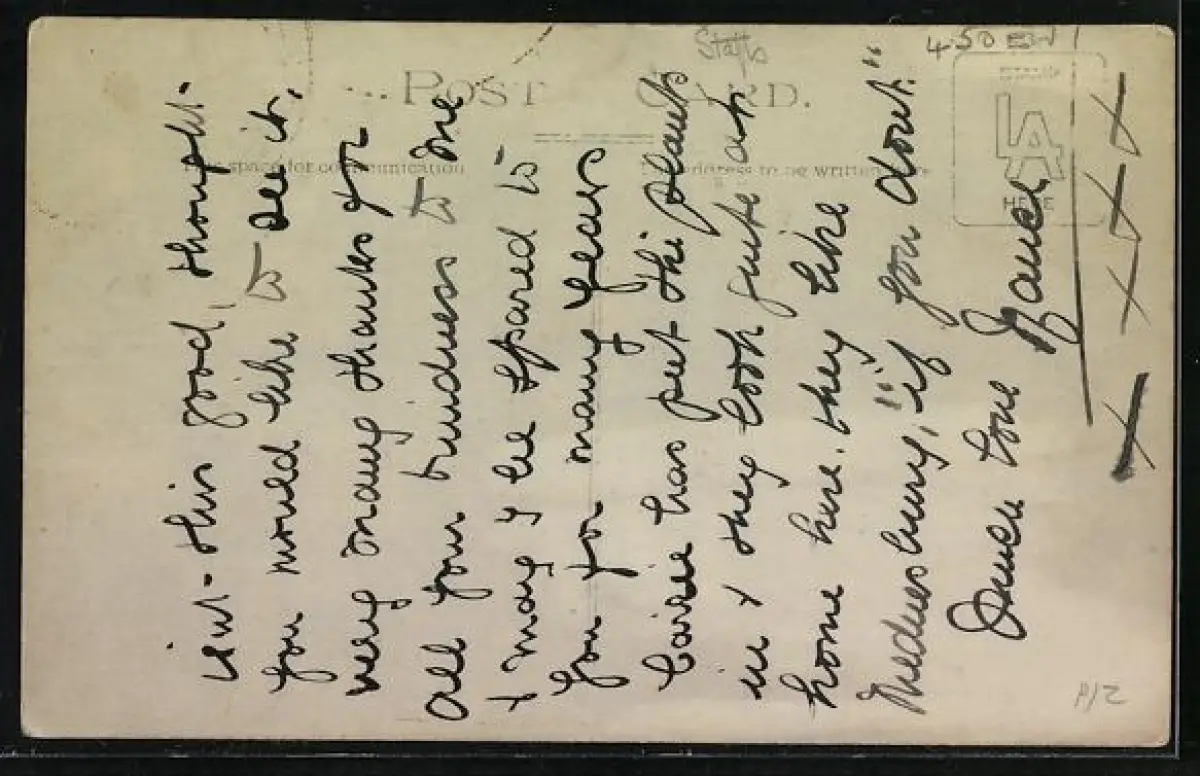 isnt this good, thought
you would like to see it,
very many thanks for
all your kindness to me
& may I be spared to
you for many years
Carrie has put the plants
in & they look quite at
home here. they like
Wednesbury, "if you dont"
Much love
Staffs
450
POST CARD.
space for communication
address to be written
LA
HERE
P/2